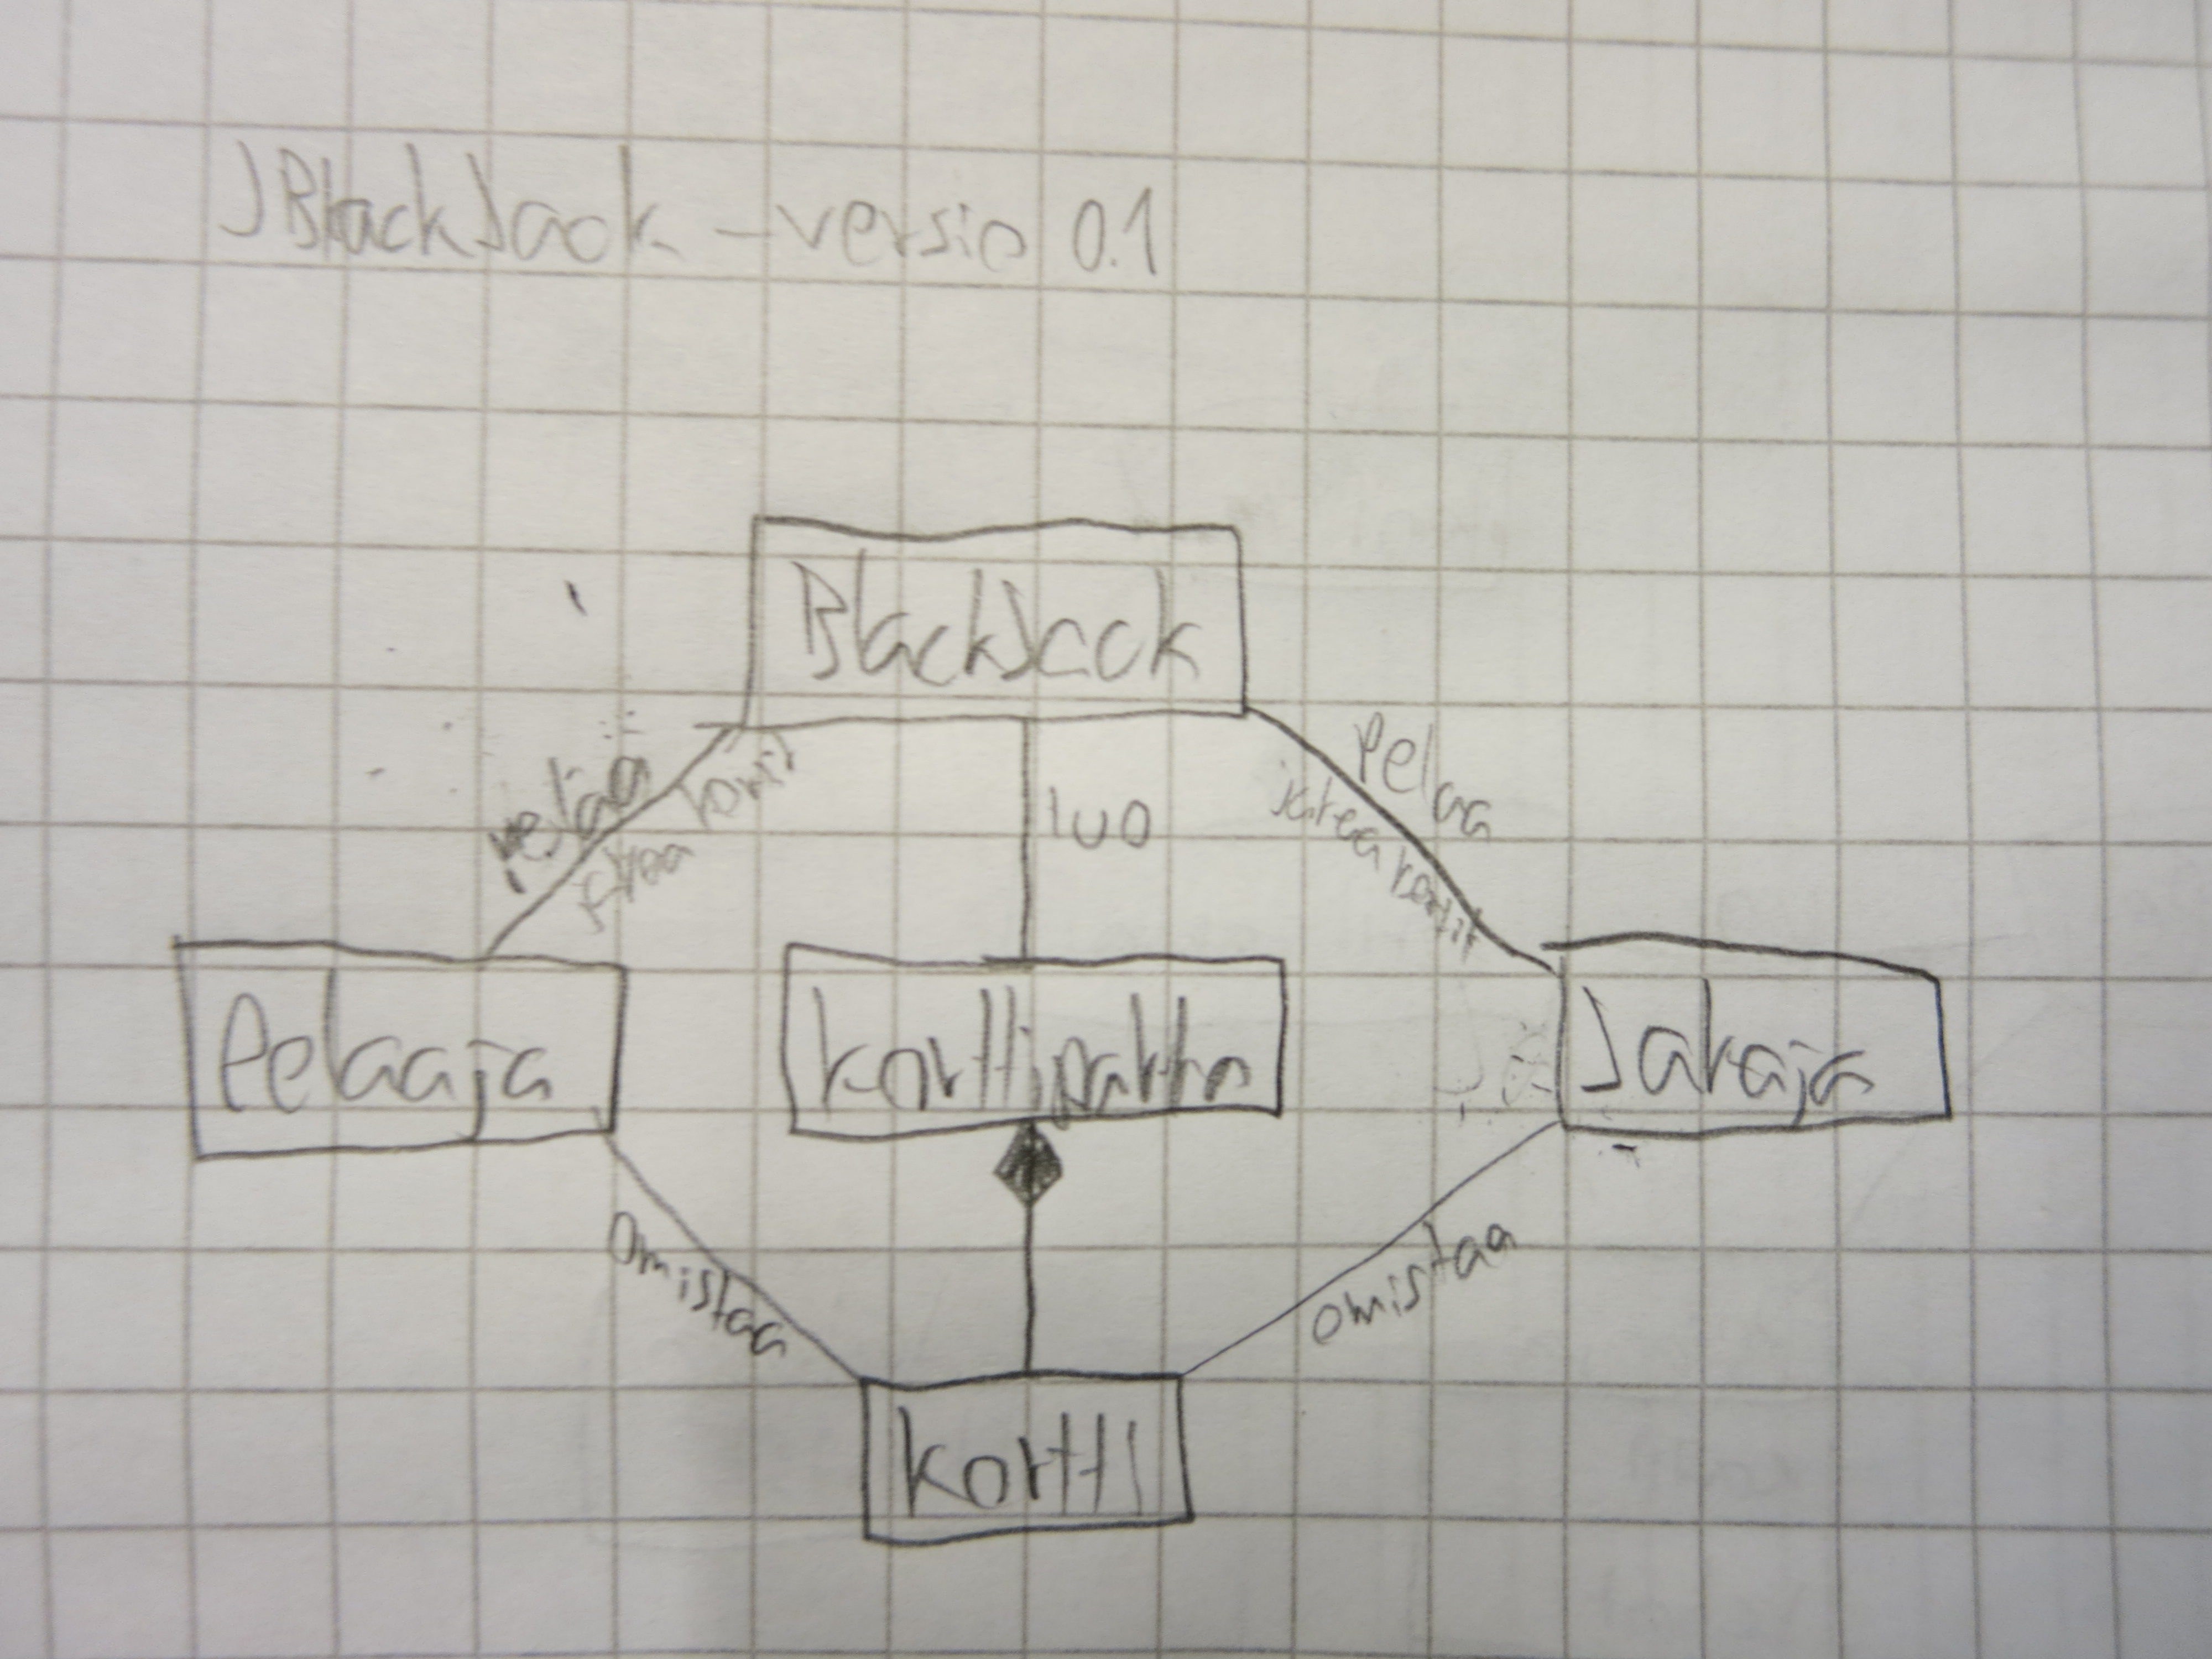 JBlackJack - versio 0.1
BlackJack
pelaa
luo
Pelaa
jakaa kortit
Pelaaja
Korttipakka
Jakaja
omistaa
omistaa
Kortti